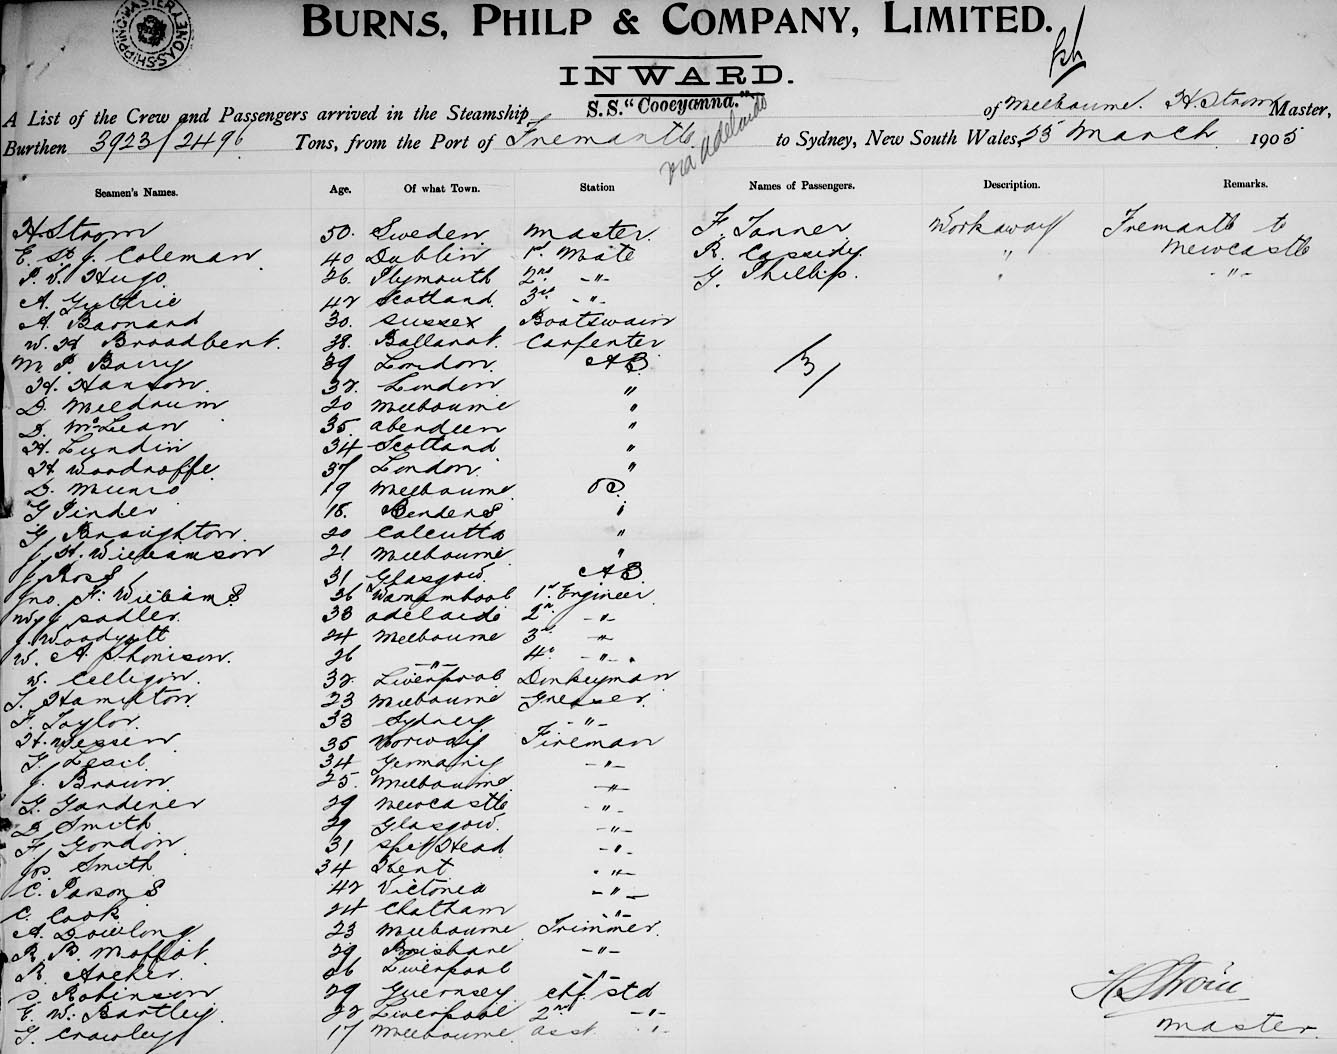 SHIPPING MASTER SYDNEY
BURNS, PHILP & COMPANY, LIMITED.
INWARD.
A List of the Crew and Passengers arrived in the Steamship S.S. "Cooeyanna." of Melbourne. H. Strom Master,
Burthen 3923/2496 Tons, from the Port of Fremantle via Adelaide to Sydney, New South Wales, 25 March 1905
Seamen's Names. Age. Of what Town. Station Names of Passengers. Description. Remarks.
H. Strom 50. Sweden Master. F. Tanner Workaway Fremantle to
E. St. J. Coleman 40 Dublin 1st Mate R. Cassidy " Newcastle
P. V. Hugo 26. Plymouth 2nd -"- G. Phillips. " -"-
A. Guthrie 42 Scotland 3rd -"-
A. Barnard 30. Sussex Boatswain
W. H. Broadbent. 38. Ballarat. Carpenter
M P. Barry 39 London. AB. 3/
H. Hanson. 32. London "
D. Meldrum 20 Melbourne "
D. McLean 35. Aberdeen "
H. Lundin 34 Scotland "
H. Woodroffe 37 London. "
D. Munro 19 Melbourne. OS.
G Pinder 18. "
G. Broughton. 20 Calcutta "
J. H. Williamson 21 Melbourne "
J. Ross 31 Glasgow. AB
Jno. F. Williams 36 Warnambool 1st Engineer
W. J. Sadler. 33 Adelaide 2nd -"-
J. Woodyatt 24 Melbourne 3rd -"-
W. A. Thomson. 26 -"- 4th -"-
W. Celligon. 32 Liverpool Donkeyman
T. Hamilton. 23 Melbourne Greaser.
F. Taylor. 33 Sydney -"-
H. Wessen 35 Norway Fireman
G. 34 Germany -"-
J. Brown. 25. Melbourne -"-
G. Gardener 29 Newcastle -"-
D. Smith 29 Glasgow. -"-
F. Gordon. 31 Head -"-
Jos. Smith 34 Kent -"-
C. Parsons 42 Victoria -"-
C. Cook 24 Chatham -"-
A. Dowlong 23 Melbourne Trimmer.
R. R. Moffat. 29 Brisbane -"-
R. Archer. 26 Liverpool -"-
S. Robinson 29 Guernsey Chf. Std
E. W. Bartley. 22 Liverpool 2nd -"-
G. Crowley 17 Melbourne asst. -"-
H Strom
Master.